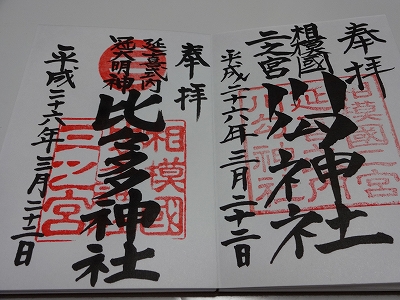 奉拝
相模國
二之宮
川勾神社
平成二十六年三月二十二日
相模國二宮
川勾神社
奉拝
延喜式内
冠大明神
比々多神社
平成二十六年三月二十二日
相模國
三之宮